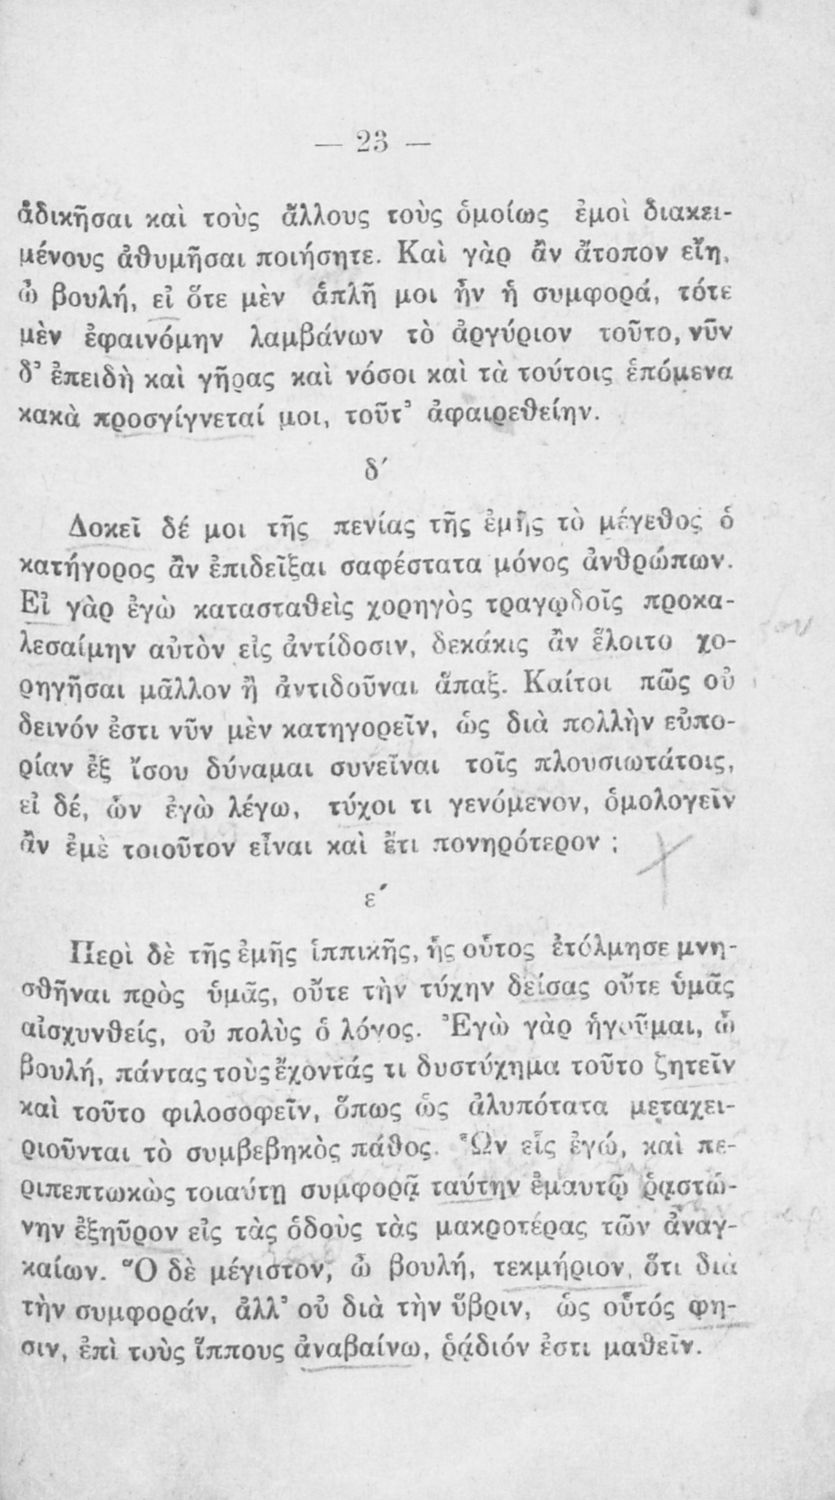 — 23 —
ἀδικῆσαι καὶ τοὺς ἄλλους τοὺς ὁμοίως ἐμοὶ διακει-
μένους ἀθυμῆσαι ποιήσητε. Καὶ γὰρ ἂν ἄτοπον εἴη,
ὦ βουλή, εἰ ὅτε μὲν ἁπλῆ μοι ἦν ἡ συμφορά, τότε
μὲν ἐφαινόμην λαμβάνων τὸ ἀργύριον τοῦτο, νῦν
δ' ἐπειδὴ καὶ γῆρας καὶ νόσοι καὶ τὰ τούτοις ἑπόμενα
κακὰ προσγίγνεταί μοι, τοῦτ' ἀφαιρεθείην.
δ΄
Δοκεῖ δέ μοι τῆς πενίας τῆς ἐμῆς τὸ μέγεθος ὁ
κατήγορος ἂν ἐπιδεῖξαι σαφέστατα μόνος ἀνθρώπων.
Εἰ γὰρ ἐγὼ κατασταθεὶς χορηγὸς τραγῳδοῖς προκα-
λεσαίμην αὐτὸν εἰς ἀντίδοσιν, δεκάκις ἂν ἕλοιτο χο-
ρηγῆσαι μᾶλλον ἢ ἀντιδοῦναι ἅπαξ. Καίτοι πῶς οὐ
δεινόν ἐστι νῦν μὲν κατηγορεῖν, ὡς διὰ πολλὴν εὐπο-
ρίαν ἐξ ἴσου δύναμαι συνεῖναι τοῖς πλουσιωτάτοις,
εἰ δέ, ὧν ἐγὼ λέγω, τύχοι τι γενόμενον, ὁμολογεῖν
ἂν ἐμὲ τοιοῦτον εἶναι καὶ ἔτι πονηρότερον ;
ε΄
Περὶ δὲ τῆς ἐμῆς ἱππικῆς, ἧς οὗτος ἐτόλμησε μνη-
σθῆναι πρὸς ὑμᾶς, οὔτε τὴν τύχην δείσας οὔτε ὑμᾶς
αἰσχυνθείς, οὐ πολὺς ὁ λόγος. Ἐγὼ γὰρ ἡγοῦμαι, ὦ
βουλή, πάντας τοὺς ἔχοντάς τι δυστύχημα τοῦτο ζητεῖν
καὶ τοῦτο φιλοσοφεῖν, ὅπως ὡς ἀλυπότατα μεταχει-
ριοῦνται τὸ συμβεβηκὸς πάθος. Ὧν εἷς ἐγώ, καὶ πε-
ριπεπτωκὼς τοιαύτῃ συμφορᾷ ταύτην ἐμαυτῷ ῥᾳστώ-
νην ἐξηῦρον εἰς τὰς ὁδοὺς τὰς μακροτέρας τῶν ἀναγ-
καίων. Ὃ δὲ μέγιστον, ὦ βουλή, τεκμήριον, ὅτι διὰ
τὴν συμφοράν, ἀλλ' οὐ διὰ τὴν ὕβριν, ὡς οὗτός φη-
σιν, ἐπὶ τοὺς ἵππους ἀναβαίνω, ῥᾴδιόν ἐστι μαθεῖν.